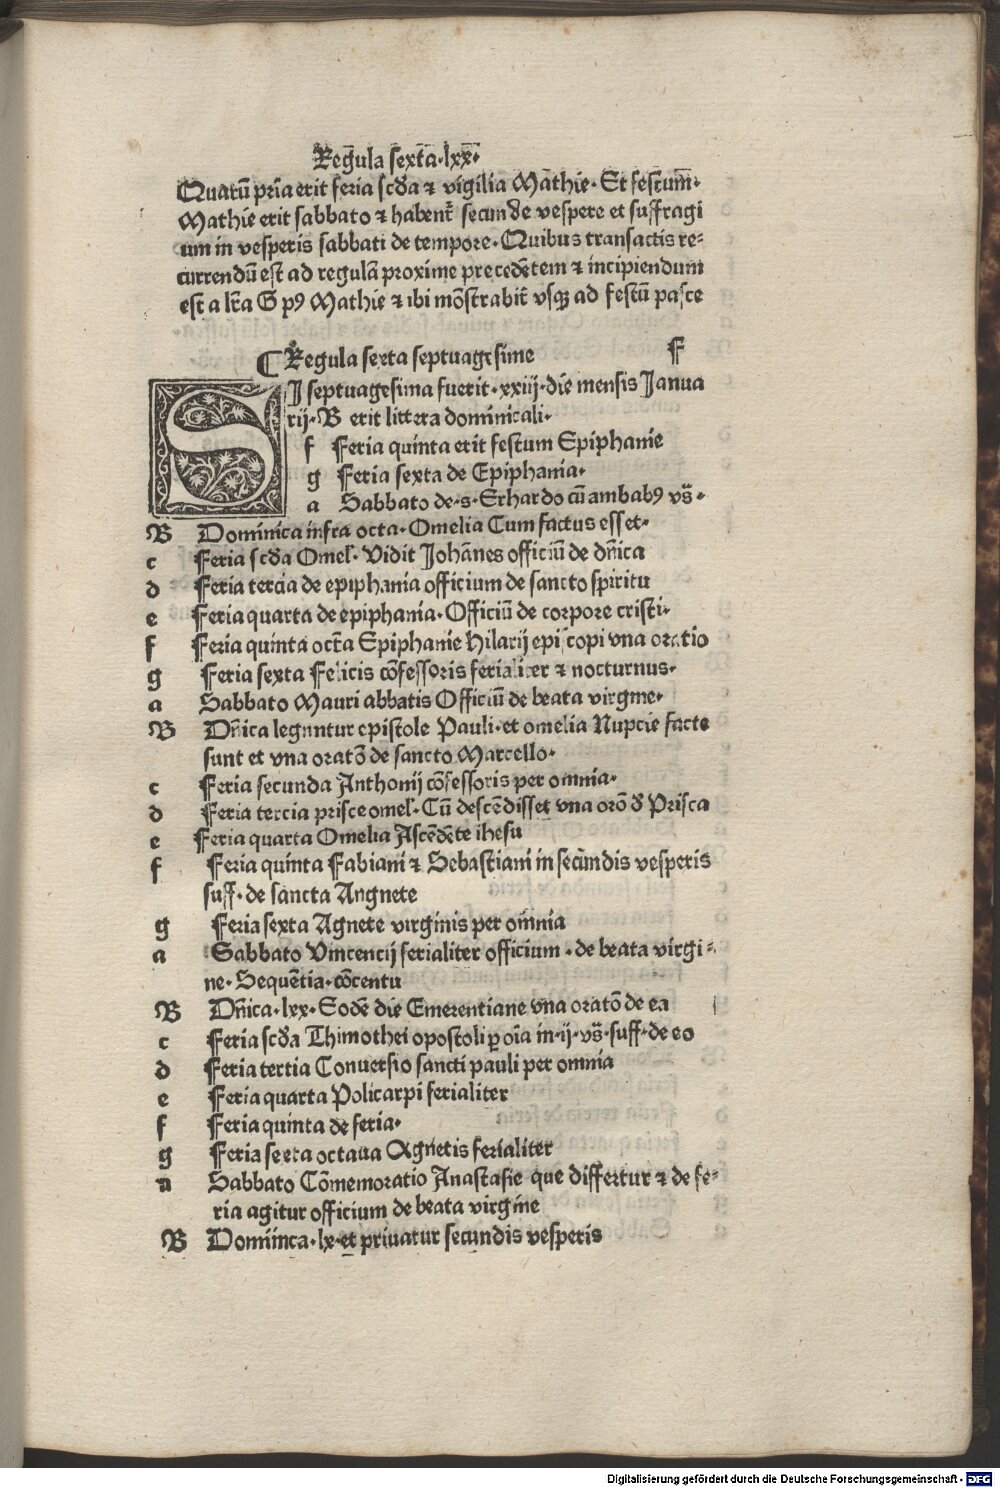 Regula sexta·lxx̄·
Quarū pria erit feria scďa ⁊ vigilia Mathie· Et festum̄·
Mathie erit sabbato ⁊ habent̄ secunde vespere et suffragi
um in vesperis sabbati de tempore· Quibus transactis re⸗
currendū est ad regulā proxime precedētem ⁊ incipiendum
est a lr̄a G pꝰ Mathie ⁊ ibi mōstrabit̄ vsqꝫ ad festū pasce
¶ Regula sexta septuagesime F
SI septuagesima fuerit·xxiij·die mensis Janua
rij·B erit littera dominicali·
f Feria quinta erit festum Epiphanie
g Feria sexta de Epiphania·
a Sabbato de·s·Erhardo cū ambabꝰ vs̄·
B Dominica infra octa· Omelia Cum factus esset·
c Feria scďa Omel· Vidit Johānes officiū de dn̄ica
d Feria tercia de epiphania officium de sancto spiritu
e Feria quarta de epiphania· Officiū de corpore cristi·
f Feria quinta oct̄a Epiphanie Hilarij episcopi vna oratio
g Feria sexta Felicis cōfessoris ferialiter ⁊ nocturnus·
a Sabbato Mauri abbatis Officiū de beata virgine·
B Dn̄ica leguntur epistole Pauli·et omelia Nupcie facte
sunt et vna oratō de sancto Marcello·
c Feria secunda Anthonij cōfessoris per omnia·
d Feria tercia prisce omel· Cū descēdisset vna orō ď Prisca
e Feria quarta Omelia Ascēdēte ihesu
f Feria quinta Fabiani ⁊ Sebastiani in secūndis vesperis
suff· de sancta Angnete
g Feria sexta Agnete virginis per om̄nia
a Sabbato Vincencij ferialiter officium · de beata virgi⸗
ne· Sequētia·cōcentu
B Dn̄ica·lxx·Eodē die Emerentiane vna oratō de ea
c Feria scďa Thimothei opostoli ꝑ oīa in·ij·vs̄·suff·de eo
d Feria tertia Conuersio sancti pauli per omnia
e Feria quarta Policarpi ferialiter
f Feria quinta de feria·
g Feria sexta octaua Agnetis ferialiter
a Sabbato Cōmemoratio Anastasie que differtur ⁊ de fe⸗
ria agitur officium de beata virgine
B Dominica·lx·et priuatur secundis vesperis
Digitalisierung gefördert durch die Deutsche Forschungsgemeinschaft - DFG